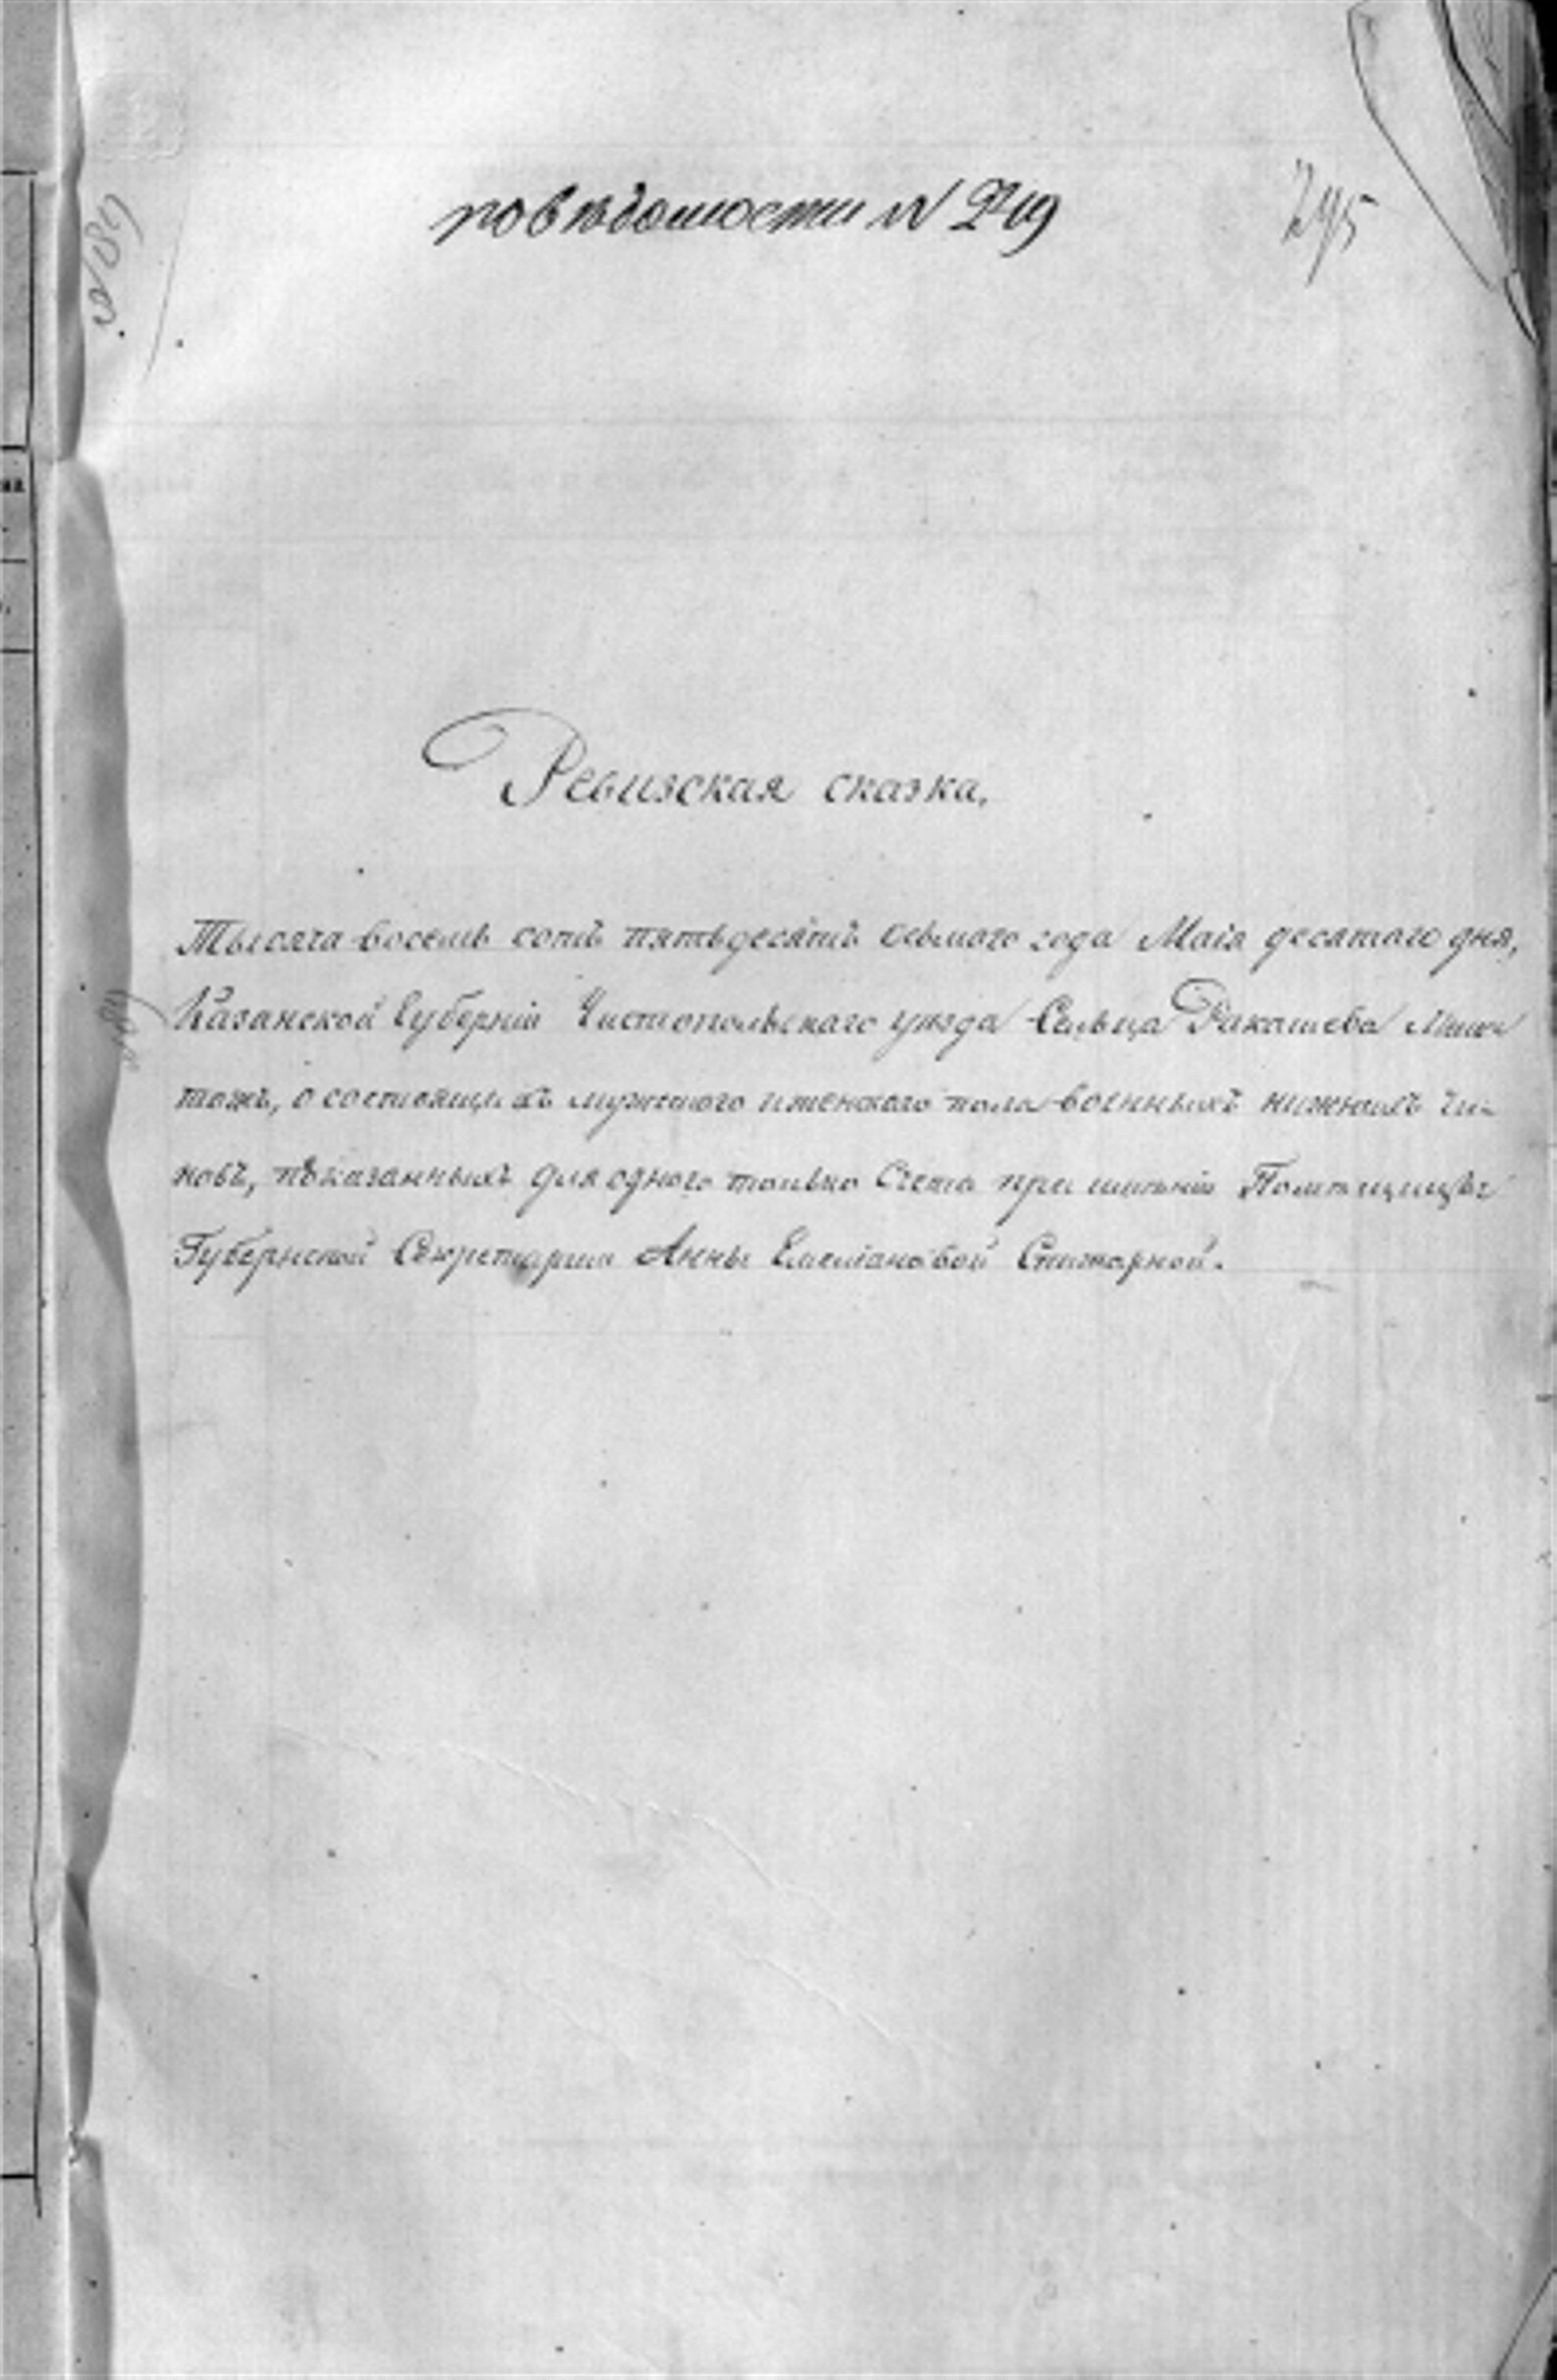 по вѣдомости N 249
295
Ревизская сказка.
Тысяча восемь сотъ пятьдесятъ осьмаго года Маія десятаго дня,
Казанской Губерніи Чистопольскаго уѣзда Сельца Ракашева
тожъ, о состоящихъ мужескаго и женскаго пола военныхъ нижнихъ чи-
новъ, показанныхъ для одного только Счета при имѣніи Помѣщицы
Губернской Секретарши Анны Емельяновой